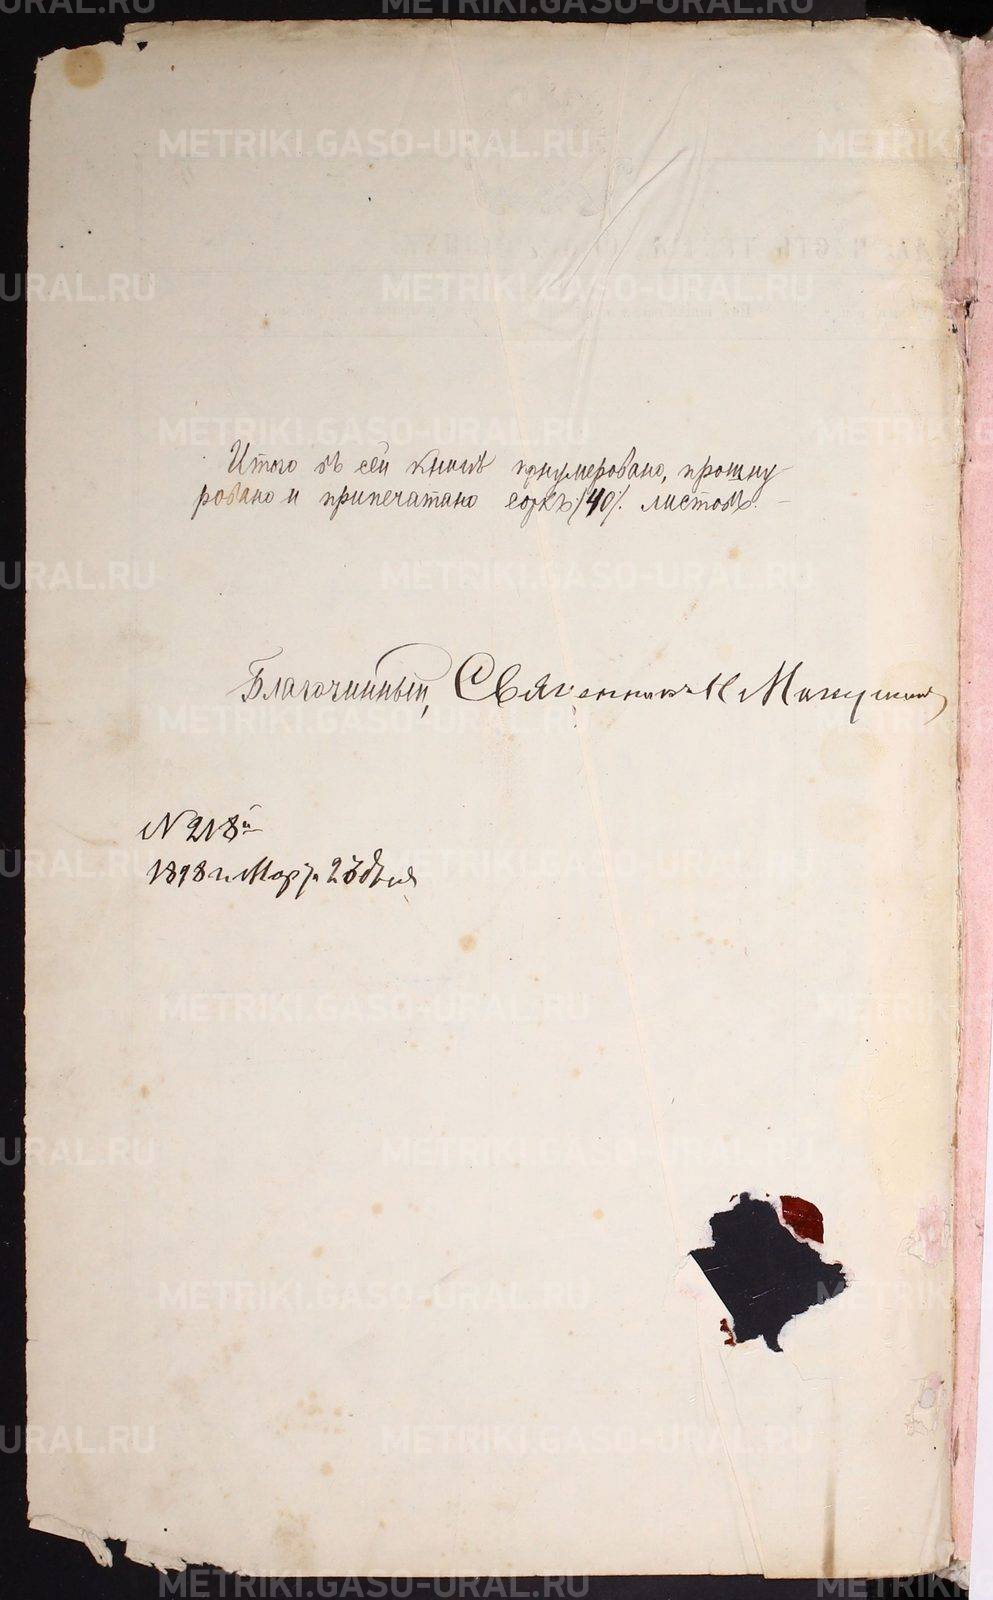 Итого въ сей книгѣ пронумеровано, прошну-
ровано и припечатано сорокъ /40/. листовъ. –
Благочинный, Священникъ
N 218й
1898 г. Мар 23 дня
METRIKI.GASO-URAL.RU